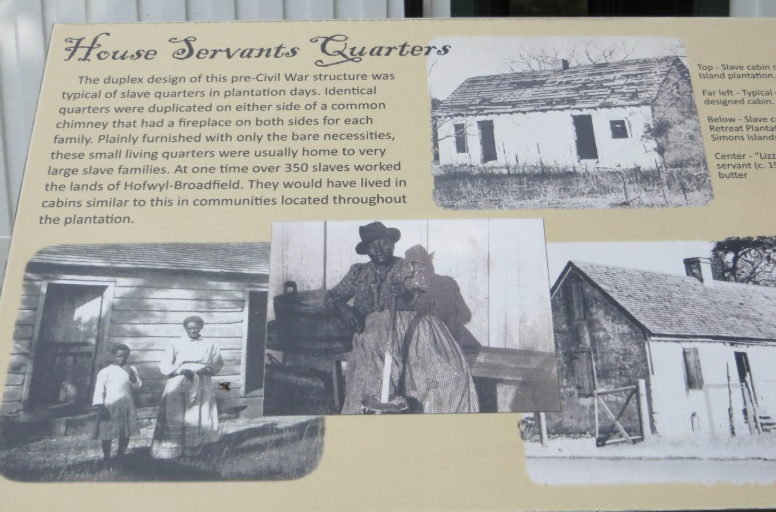 House Servants Quarters
The duplex design of this pre-Civil War structure was
typical of slave quarters in plantation days. Identical
quarters were duplicated on either side of a common
chimney that had a fireplace on both sides for each
family. Plainly furnished with only the bare necessities,
these small living quarters were usually home to very
large slave families. At one time over 350 slaves worked
the lands of Hofwyl-Broadfield. They would have lived in
cabins similar to this in communities located throughout
the plantation.
Top - Slave cabin
Island plantation.
Far left - Typical
designed cabin.
Below - Slave
Retreat
Simons Island
Center -
servant (c.
butter